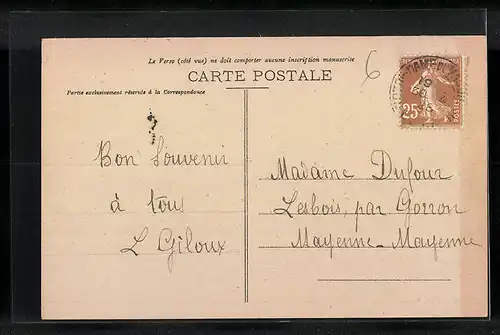 Le Verso (côté vu) ne doit comporter aucune inscription manuscrite
CARTE POSTALE
Partie exclusivement réservée à la Correspondance
6
25c
POSTES
Bon Souvenir
à tous
L Giloux
Madame Dufour
Lesbois, par Gorron
Mayenne - Mayenne